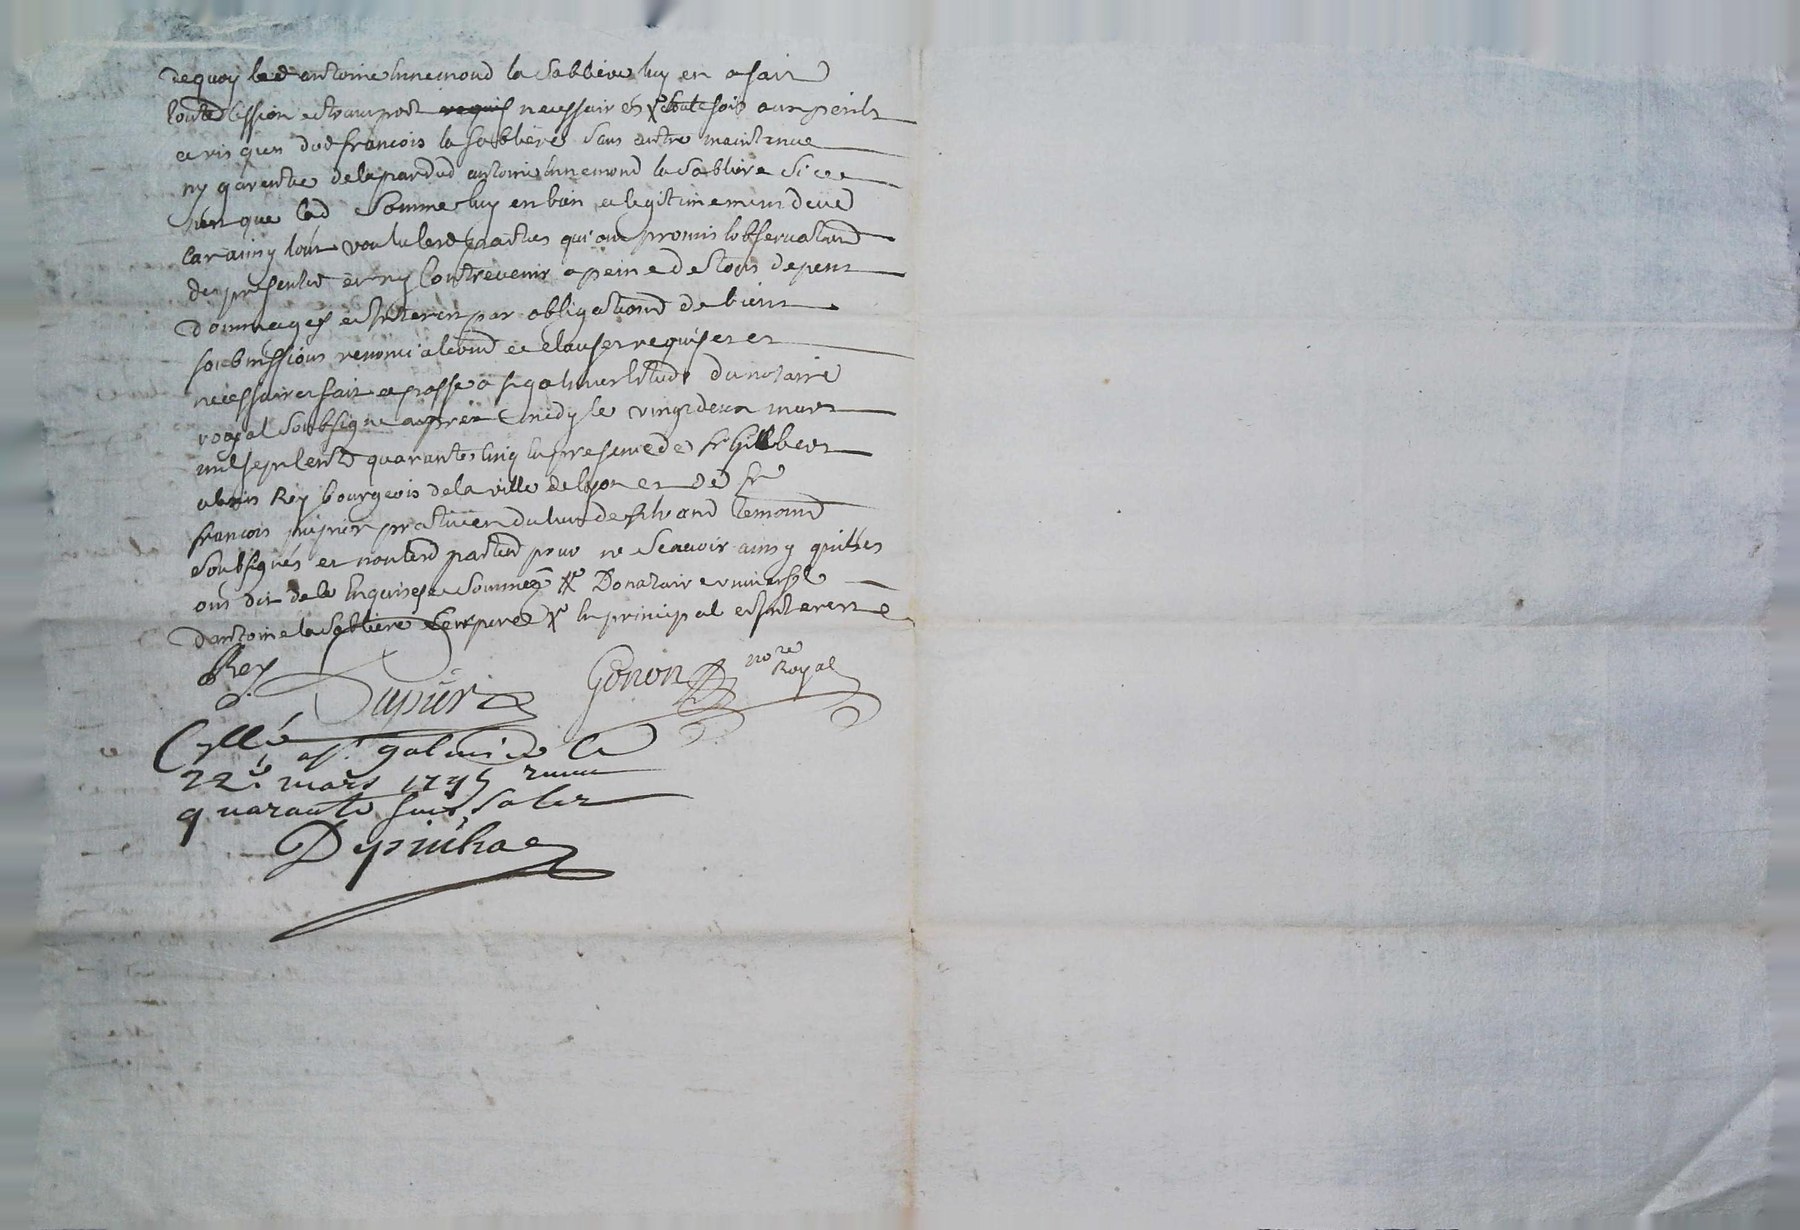 de quoy led antoine hnnemond la Sabliere luy en a fait
toutte Cession et transport requis necessair en * toutefois aux perils
et risques dud francois la Sabliere sans autre maintenue
ny garentie de la par dud antoine hnnemond la Sabliere Si ce
n'est que lad Somme luy en bien et legitimement deüe
Car ainsy l'ont voulu lesd parties qui ont promis l'observation
des presentes et ny Contrevenir a peine de tous depens
dommages et interests par obligation de biens
soubmissions renonciation et clauses requises et
necessaires fait et passé a st galmier Etude du notaire
royal Soubsigné apres midy le vingt deux mars
mil sept cent quarante cinq en presence de sr Gilbert
alexis Rey bourgeois de la ville de lyon et de sr
francois pupier praticien du lieu de temoins
Soubsignés et non lesd parties pour ne Scavoir ainsy qu'illes
ont dit de ce Enquises et Sommés * Donatair universel
d'antoine la Sabliere Son pere * en principal et interest
Rey
Pupier
Gonon nore Royal
Cllé a st. galmier le
22e. mars 1745 Reçu
quarante huit sols
Depinhac